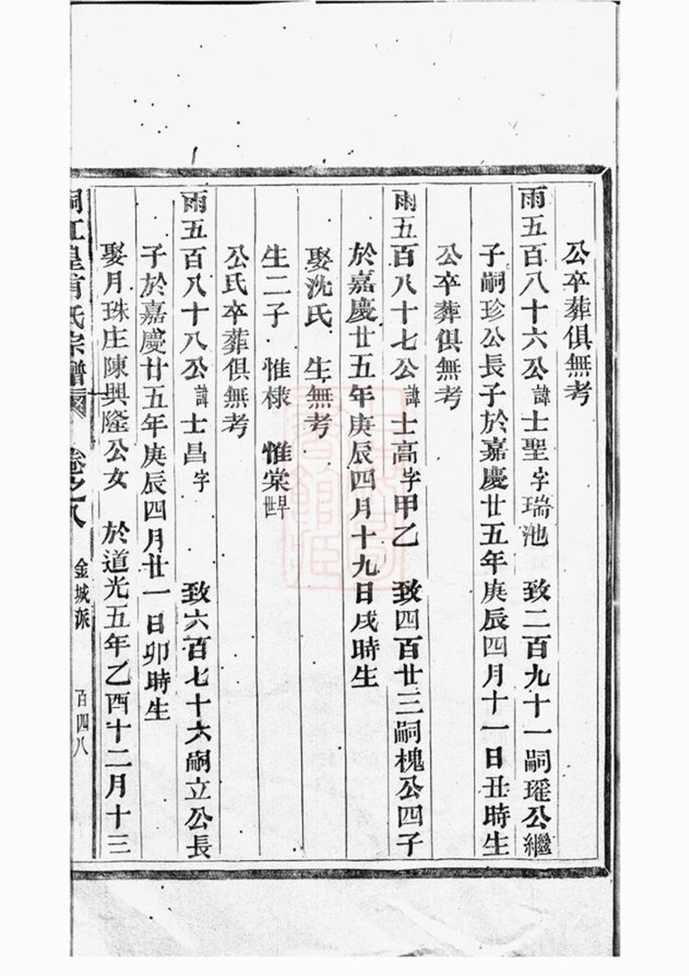 公卒葬俱無考
雨五百八十六公諱士聖字瑞池　致二百九十一嗣瑤公繼
子嗣珍公長子於嘉慶廿五年庚辰四月十一日丑時生
公卒葬俱無考
雨五百八十七公諱士高字甲乙　致四百廿三嗣槐公四子
於嘉慶廿五年庚辰四月十九日戌時生
娶沈氏　生無考
生二子　惟棣　惟棠早世
公氏卒葬俱無考
雨五百八十八公諱士昌字　致六百七十六嗣立公長
子於嘉慶廿五年庚辰四月廿一日卯時生
娶月珠庄陳興隆公女　於道光五年乙酉十二月十三
江皇甫氏宗譜　卷之八　金城派　百四八